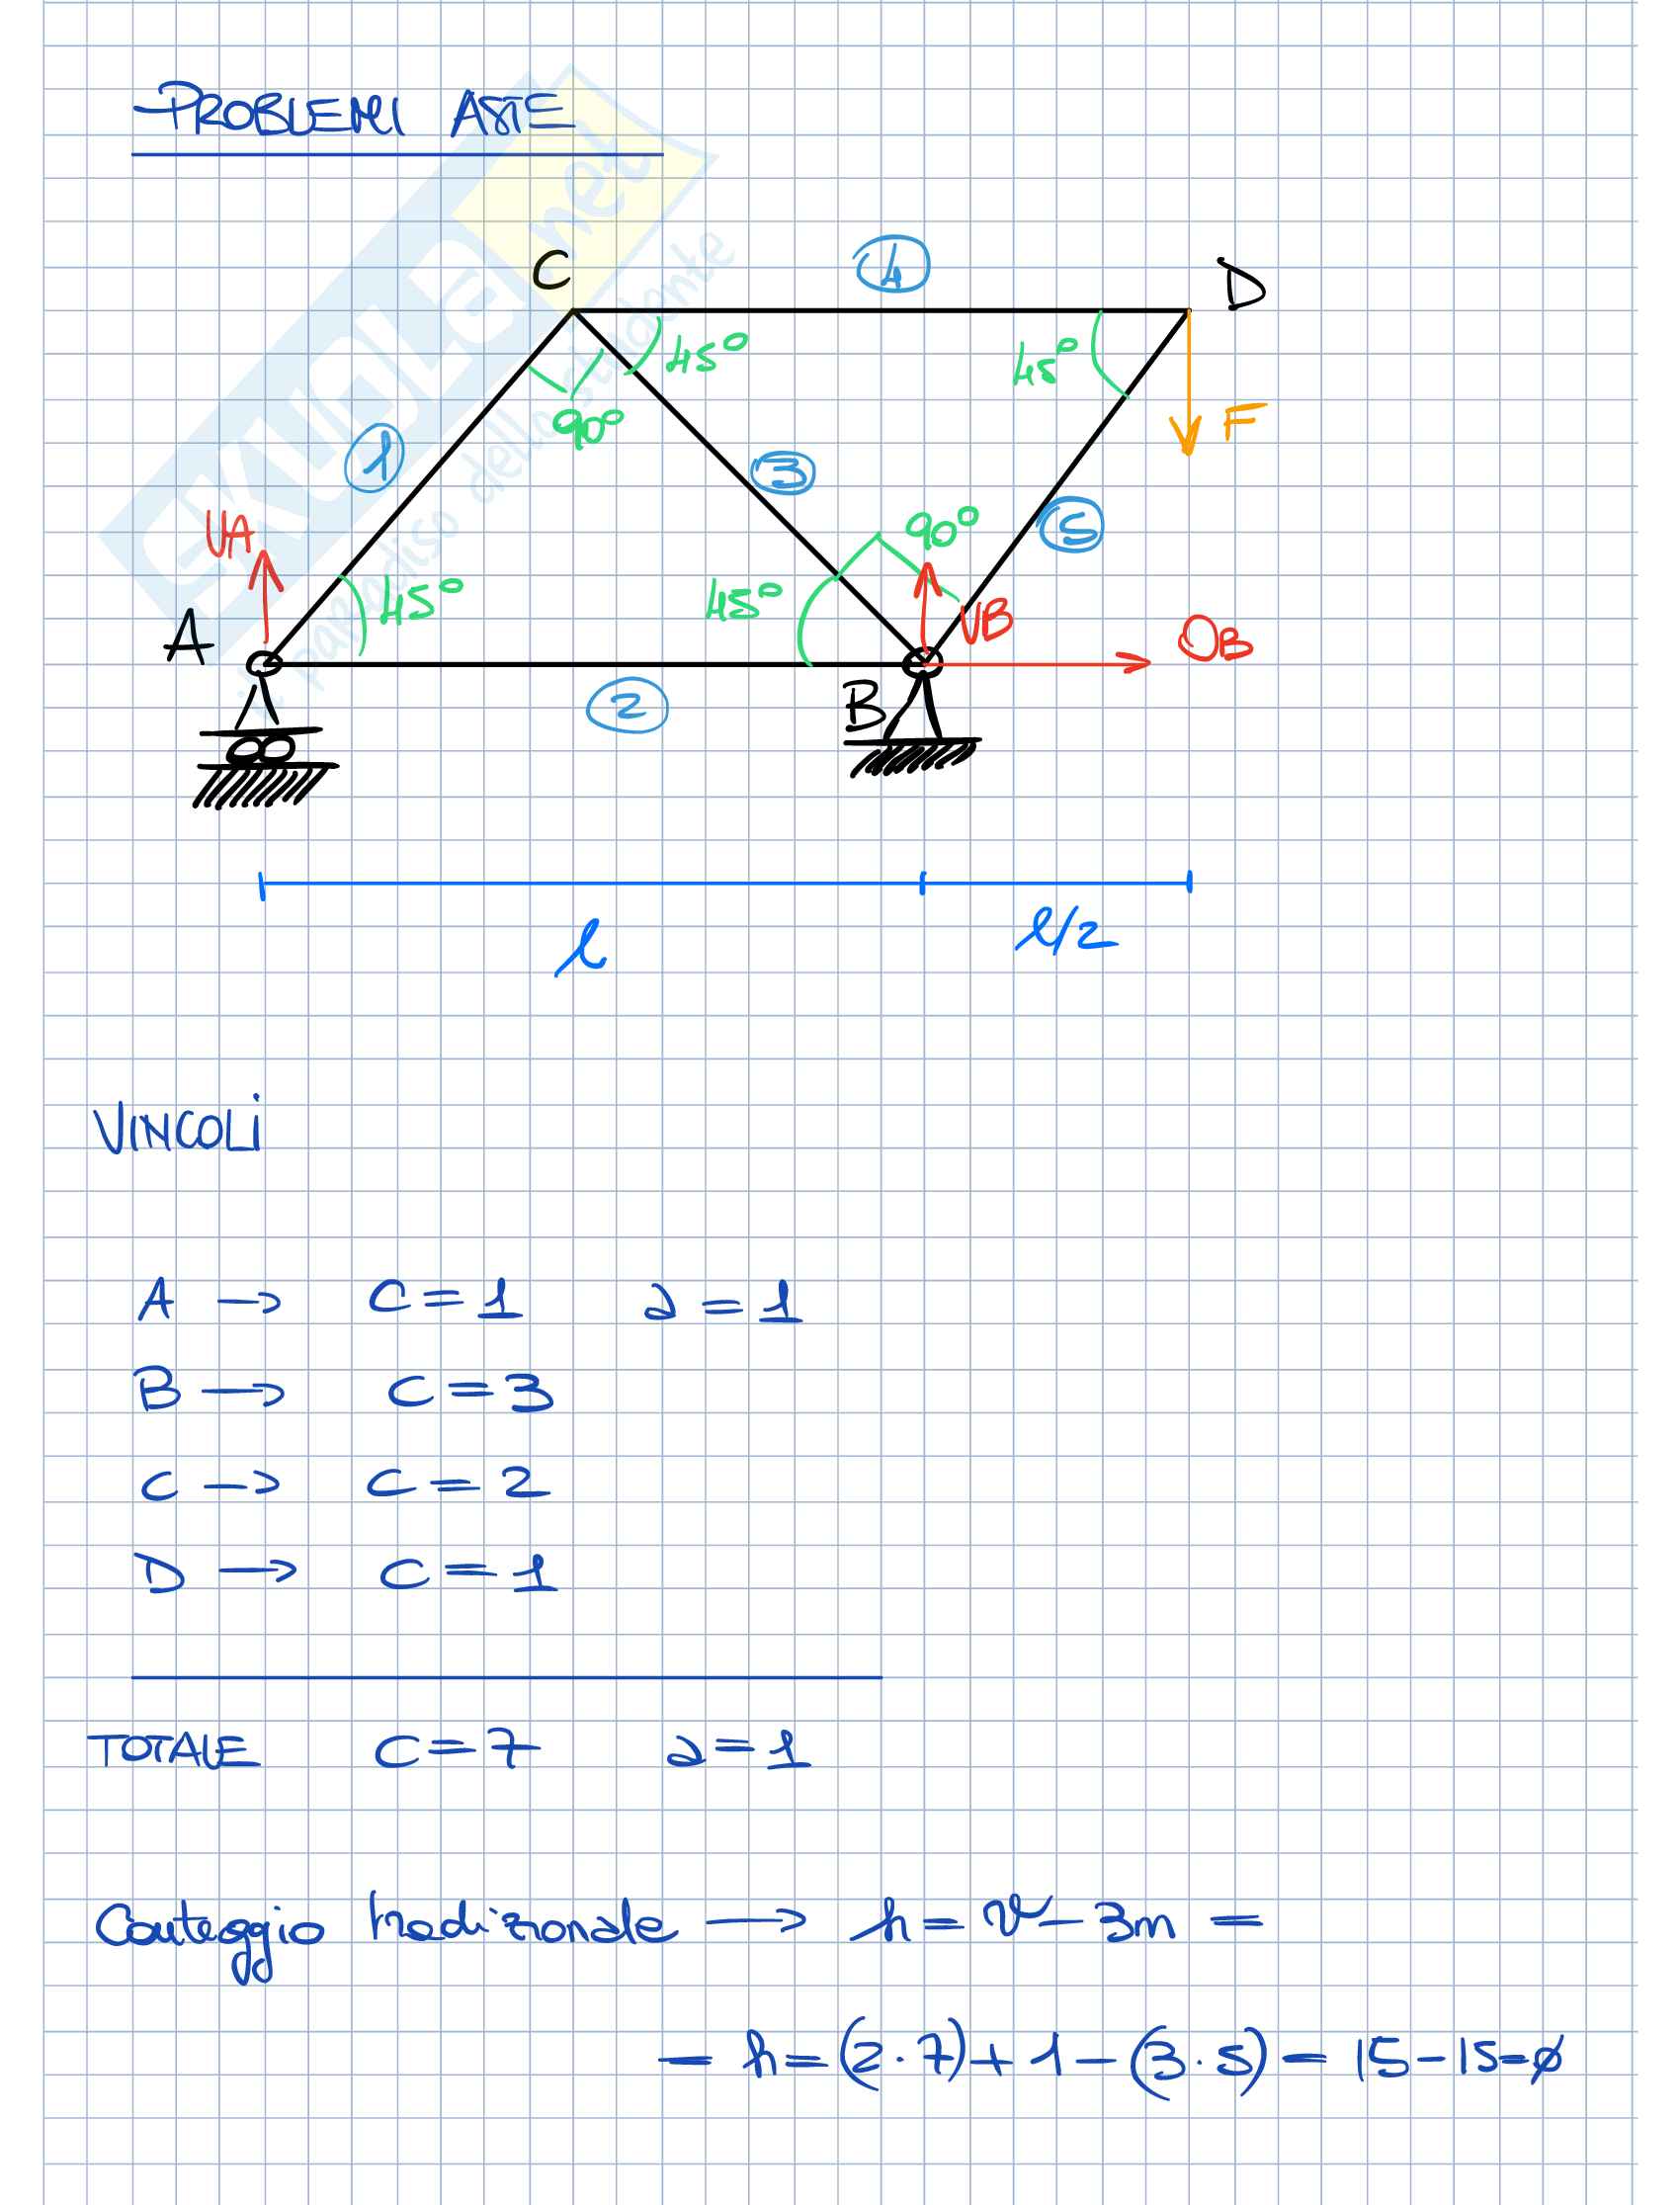 PROBLEMI ASTE
SKUOLA.net
il paradiso dello studente
C
4
D
45°
45°
90°
F
1
3
VA
5
90°
45°
45°
VB
OB
A
2
B
l
l/2
VINCOLI
A → C=1 a=1
B → C=3
C → C=2
D → C=1
TOTALE C=7 a=1
Conteggio tradizionale → h=v-3m=
= h=(2·7)+1-(3·5)=15-15=ø